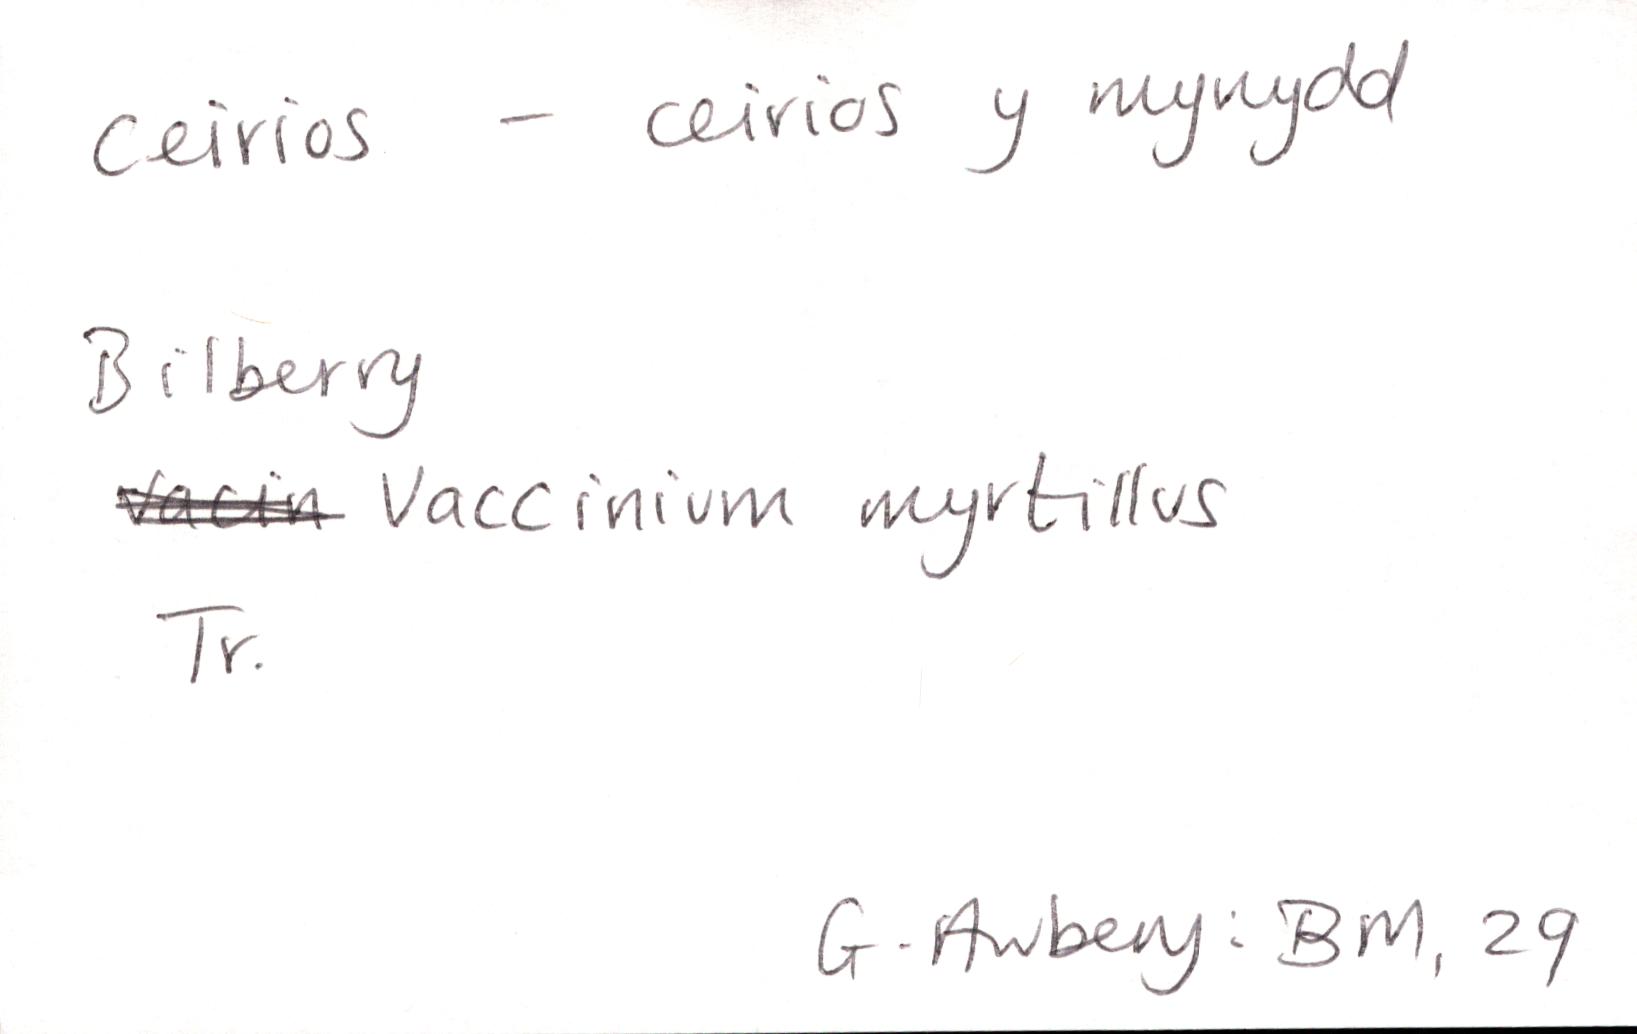 ceirios - ceirios y mynydd
Bilberry
Vacin Vaccinium myrtillus
Tr.
G. Awbery: BM, 29